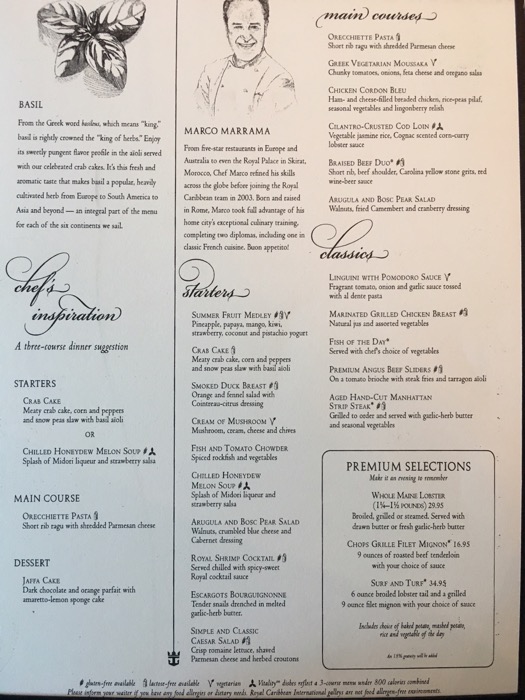 BASIL
From the Greek word basileus, which means "king,"
basil is rightly crowned the "king of herbs." Enjoy
its sweetly pungent flavor profile in the aioli served
with our celebrated crab cakes. It's this fresh and
aromatic taste that makes basil a popular, heavily
cultivated herb from Europe to South America to
Asia and beyond — an integral part of the menu
for each of the six continents we sail.
chef's
inspiration
A three-course dinner suggestion
STARTERS
CRAB CAKE
Meaty crab cake, corn and peppers
and snow peas slaw with basil aioli
OR
CHILLED HONEYDEW MELON SOUP
Splash of Midori liqueur and strawberry salsa
MAIN COURSE
ORECCHIETTE PASTA
Short rib ragu with shredded Parmesan cheese
DESSERT
JAFFA CAKE
Dark chocolate and orange parfait with
amaretto-lemon sponge cake
MARCO MARRAMA
From five-star restaurants in Europe and
Australia to even the Royal Palace in Skirat,
Morocco, Chef Marco refined his skills
across the globe before joining the Royal
Caribbean team in 2003. Born and raised
in Rome, Marco took full advantage of his
home city's exceptional culinary training,
completing two diplomas, including one in
classic French cuisine. Buon appetito!
starters
SUMMER FRUIT MEDLEY V
Pineapple, papaya, mango, kiwi,
strawberry, coconut and pistachio yogurt
CRAB CAKE
Meaty crab cake, corn and peppers
and snow peas slaw with basil aioli
SMOKED DUCK BREAST
Orange and fennel salad with
Cointreau-citrus dressing
CREAM OF MUSHROOM V
Mushroom, cream, cheese and chives
FISH AND TOMATO CHOWDER
Spiced rockfish and vegetables
CHILLED HONEYDEW
MELON SOUP
Splash of Midori liqueur and
strawberry salsa
ARUGULA AND BOSC PEAR SALAD
Walnuts, crumbled blue cheese and
Cabernet dressing
ROYAL SHRIMP COCKTAIL
Served chilled with spicy-sweet
Royal cocktail sauce
ESCARGOTS BOURGUIGNONNE
Tender snails drenched in melted
garlic-herb butter.
SIMPLE AND CLASSIC
CAESAR SALAD
Crisp romaine lettuce, shaved
Parmesan cheese and herbed croutons
main courses
ORECCHIETTE PASTA
Short rib ragu with shredded Parmesan cheese
GREEK VEGETARIAN MOUSSAKA V
Chunky tomatoes, onions, feta cheese and oregano salsa
CHICKEN CORDON BLEU
Ham- and cheese-filled breaded chicken, rice-peas pilaf,
seasonal vegetables and lingonberry relish
CILANTRO-CRUSTED COD LOIN
Vegetable jasmine rice, Cognac scented corn-curry
lobster sauce
BRAISED BEEF DUO*
Short rib, beef shoulder, Carolina yellow stone grits, red
wine-beer sauce
ARUGULA AND BOSC PEAR SALAD
Walnuts, fried Camembert and cranberry dressing
classics
LINGUINI WITH POMODORO SAUCE V
Fragrant tomato, onion and garlic sauce tossed
with al dente pasta
MARINATED GRILLED CHICKEN BREAST
Natural jus and assorted vegetables
FISH OF THE DAY*
Served with chef's choice of vegetables
PREMIUM ANGUS BEEF SLIDERS
On a tomato brioche with steak fries and tarragon aioli
AGED HAND-CUT MANHATTAN
STRIP STEAK*
Grilled to order and served with garlic-herb butter
and seasonal vegetables
PREMIUM SELECTIONS
Make it an evening to remember
WHOLE MAINE LOBSTER
(1¼–1½ POUNDS) 29.95
Broiled, grilled or steamed. Served with
drawn butter or fresh garlic-herb butter
CHOPS GRILLE FILET MIGNON* 16.95
9 ounces of roasted beef tenderloin
with your choice of sauce
SURF AND TURF* 34.95
6 ounce broiled lobster tail and a grilled
9 ounce filet mignon with your choice of sauce
Includes choice of baked potato, mashed potato,
rice and vegetable of the day
An 18% gratuity will be added
gluten-free available lactose-free available V vegetarian Vitality℠ dishes reflect a 3-course menu under 800 calories combined
Please inform your waiter if you have any food allergies or dietary needs. Royal Caribbean International galleys are not food allergen-free environments.